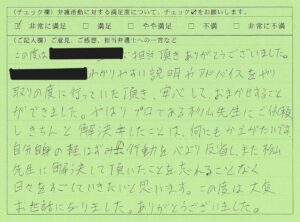 (チェック欄) 弁護活動に対する満足度について、チェック☑をお願いします。
□ 非常に満足 □ 満足 □ やや満足 □ 不満 □ 非常に不満
(ご記入欄) ご意見、ご感想、担当弁護士への一言など
この度は ご担当頂きありがとうございました。
わかりやすい説明やアドバイスをやり
取りの度に行っていた頂き、安心して、おまかせすることが
できました。やはりプロである杉山先生にご依頼
しきちんと解決出来したことは、何にもかえがたいです。
自分自身の軽はずみな行動を心より反省し、また杉山
先生に解決して頂いたことを忘れることなく
日々をすごしていきたいと思います。この度は大変
お世話になりました。ありがとうございました。